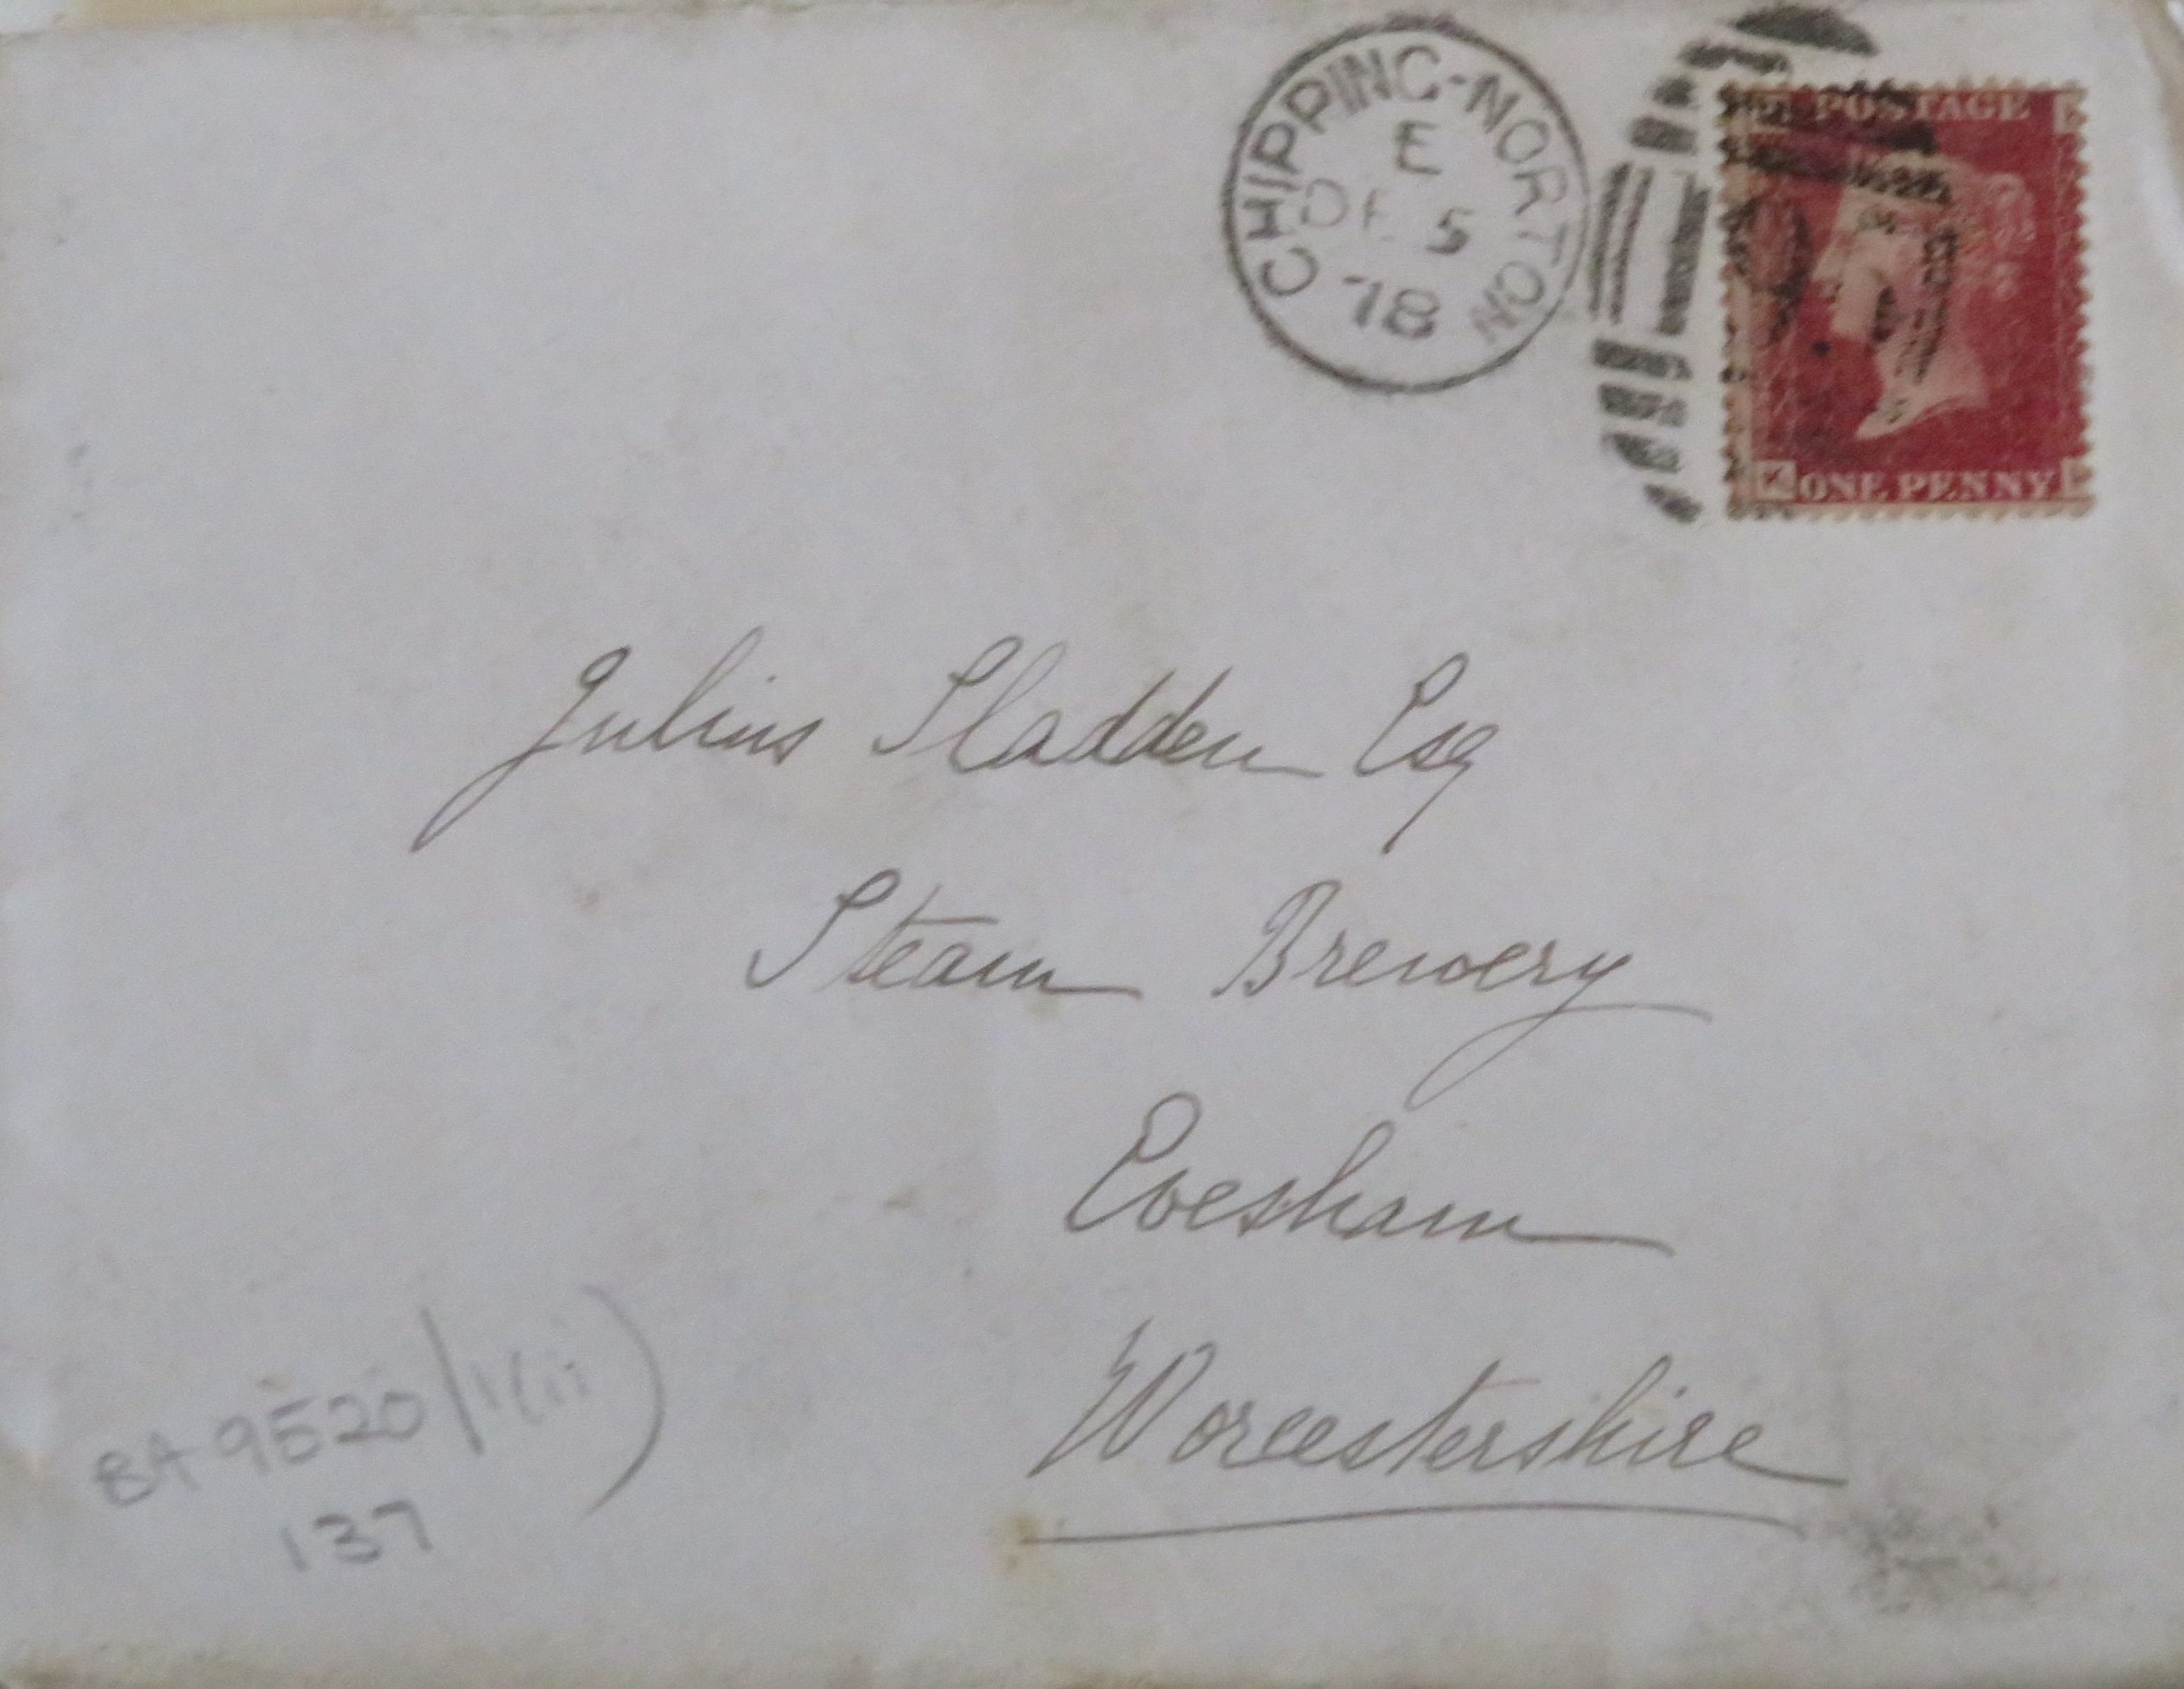 CHIPPING-NORTON
E
DE 5
78
POSTAGE
K ONE PENNY
Julius Sladden Esq
Steam Brewery
Evesham
Worcestershire
BA 9520/1(ii)
137